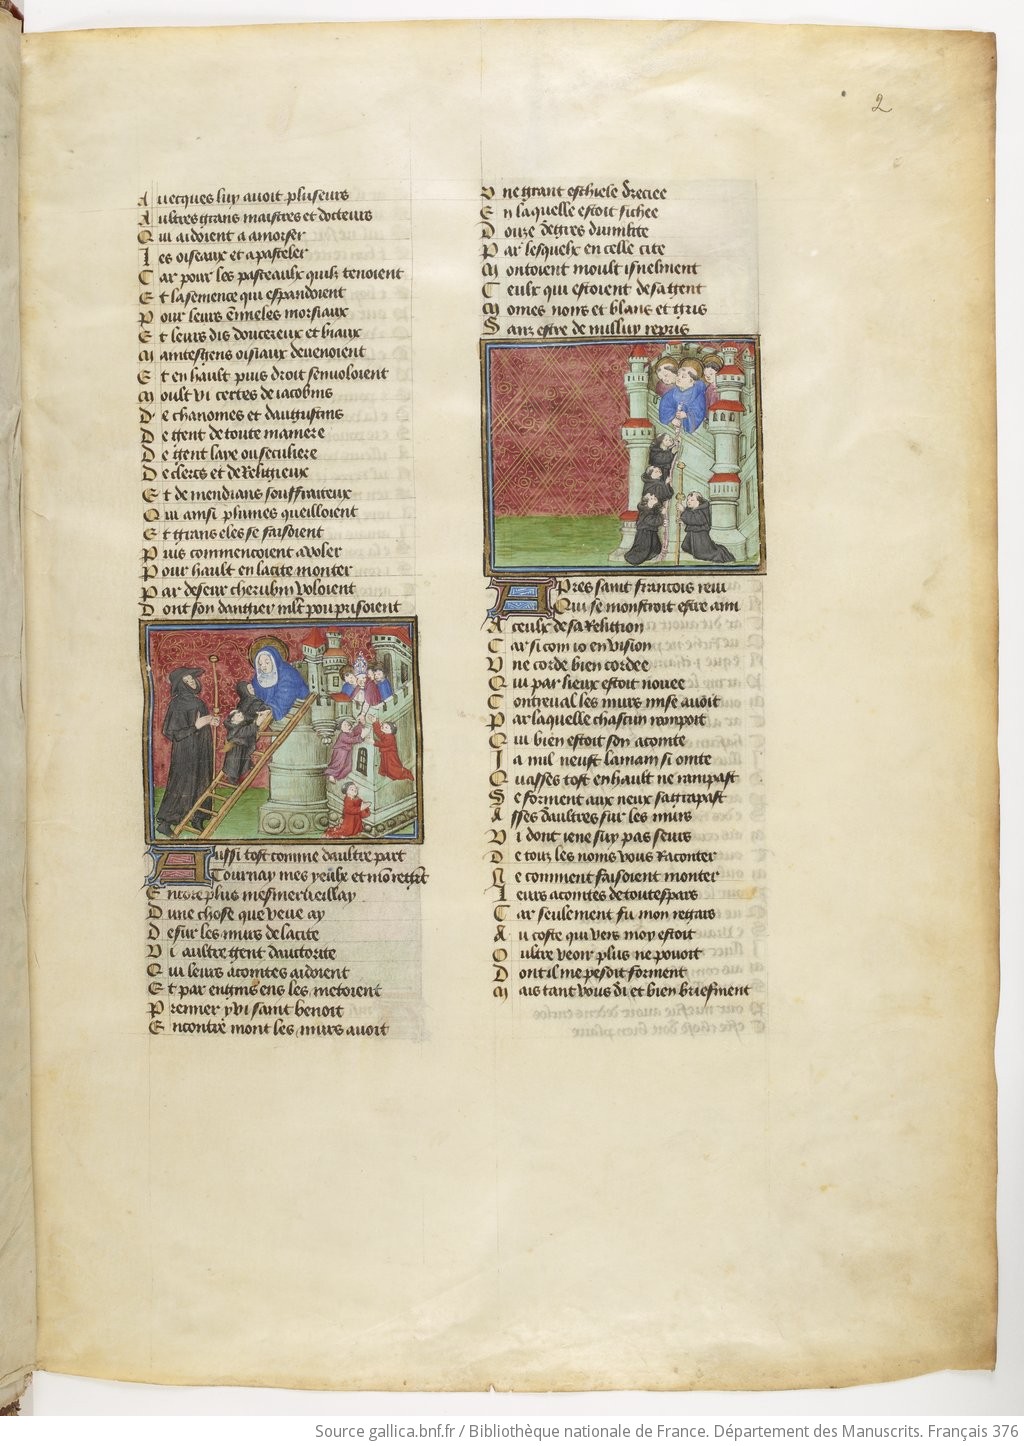 2
Avecques luy avoit pluseurs
Aultres grans maistres et docteurs
Qui aidoient a amorser
Les oiseaux et a pasteler
Car pour les pasteaulx quilz tenoient
Et la semence qui espandoient
Pour leurs emmeles morsiaux
Et leurs dis doucereux et biaux
Maintes gens oisiaux devenoient
Et en hault puis droit senvoloient
Moult vi certes de iacobins
De chanoines et daugustins
De gent de toute maniere
De gent laye ou seculiere
De clercs et de Religieux
Et de mendians souffraiteux
Qui ainsi plumes queilloient
Et grans eles se faisoient
Puis commencoient a voler
Pour hault en la cite monter
Par deseur cherubin voloient
Dont son dangier mlt pou prisoient
Aussi tost comme daultre part
Tournay mes yeulx et mon regart
Encore plus mesmerveillay
Dune chose que veue ay
Desur les murs de la cite
Vi aultre gent dauctorite
Qui leurs acointes aidoient
Et par engins ens les metoient
Premier y vi saint benoit
Encontre mont les murs avoit
Une grant eschiele dreciee
En laquelle estoit fichee
Douze degres dumilite
Par lesquelx en celle cite
Montoient moult isnelment
Ceulx qui estoient de sa gent
Moines noirs et blans et gris
Sanz estre de nulluy repris
Apres saint francois revi
Qui se monstroit estre ami
A ceulx de sa Religion
Car si com io en vision
Une corde bien cordee
Qui par lieux estoit nouee
Contreval les murs mise avoit
Par laquelle chascun rampoit
Qui bien estoit son acointe
Ia nul neust la main si ointe
Quasses tost en hault ne rampast
Se forment aux neux sagrapast
Asses daultres sur les murs
Vi dont ie ne suy pas seurs
De touz les noms vous Raconter
Ne comment faisoient monter
Leurs acointes de toutes pars
Car seulement fu mon regars
Au coste qui vers moy estoit
Oultre veoir plus ne povoit
Dont il me pesoit forment
Mais tant vous di et bien briefment
Source gallica.bnf.fr / Bibliothèque nationale de France. Département des Manuscrits. Français 376